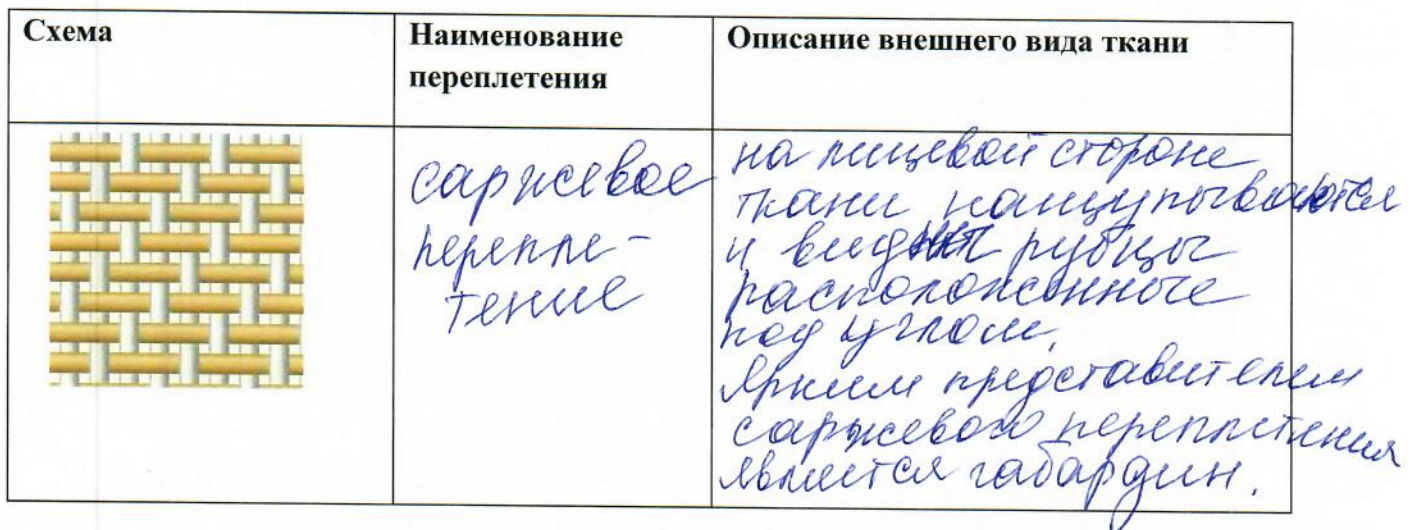 Схема
Наименование
переплетения
Описание внешнего вида ткани
саржевое
перепле-
тение
на лицевой стороне
ткани нащупываются
и видны рубцы
расположенные
под углом.
Ярким представителем
саржевого переплетения
является габардин.